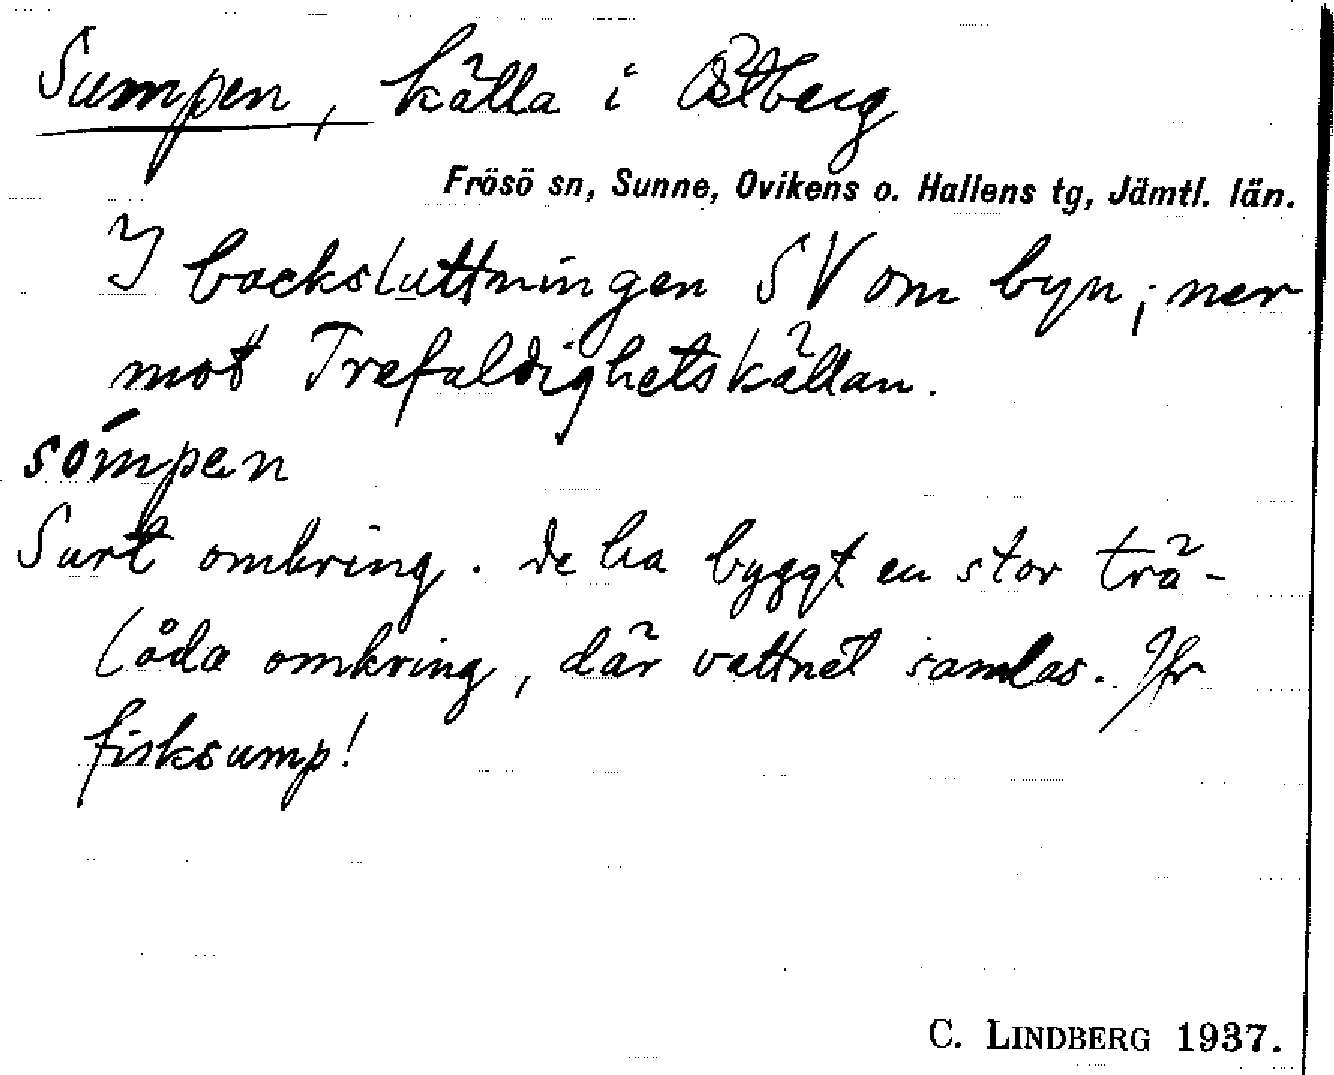 Sumpen, källa i Östberg
Frösö sn, Sunne, Ovikens o. Hallens tg, Jämtl. län.
I backsluttningen SV om byn; ner
mot Trefaldighetskällan.
sómpen
Surt omkring. De ha byggt en stor trä-
låda omkring, där vattnet samlas. Jfr
fisksump!
C. LINDBERG 1937.